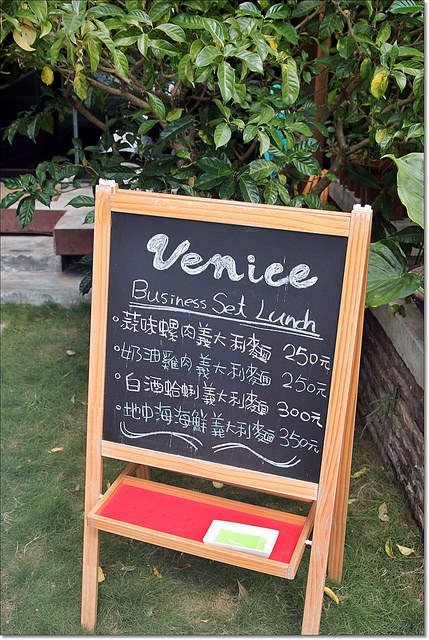 Venice
Business Set Lunch
。蒜味螺肉義大利麵 250元
。奶油雞肉義大利麵 250元
。白酒蛤蜊義大利麵 300元
。地中海海鮮義大利麵 350元